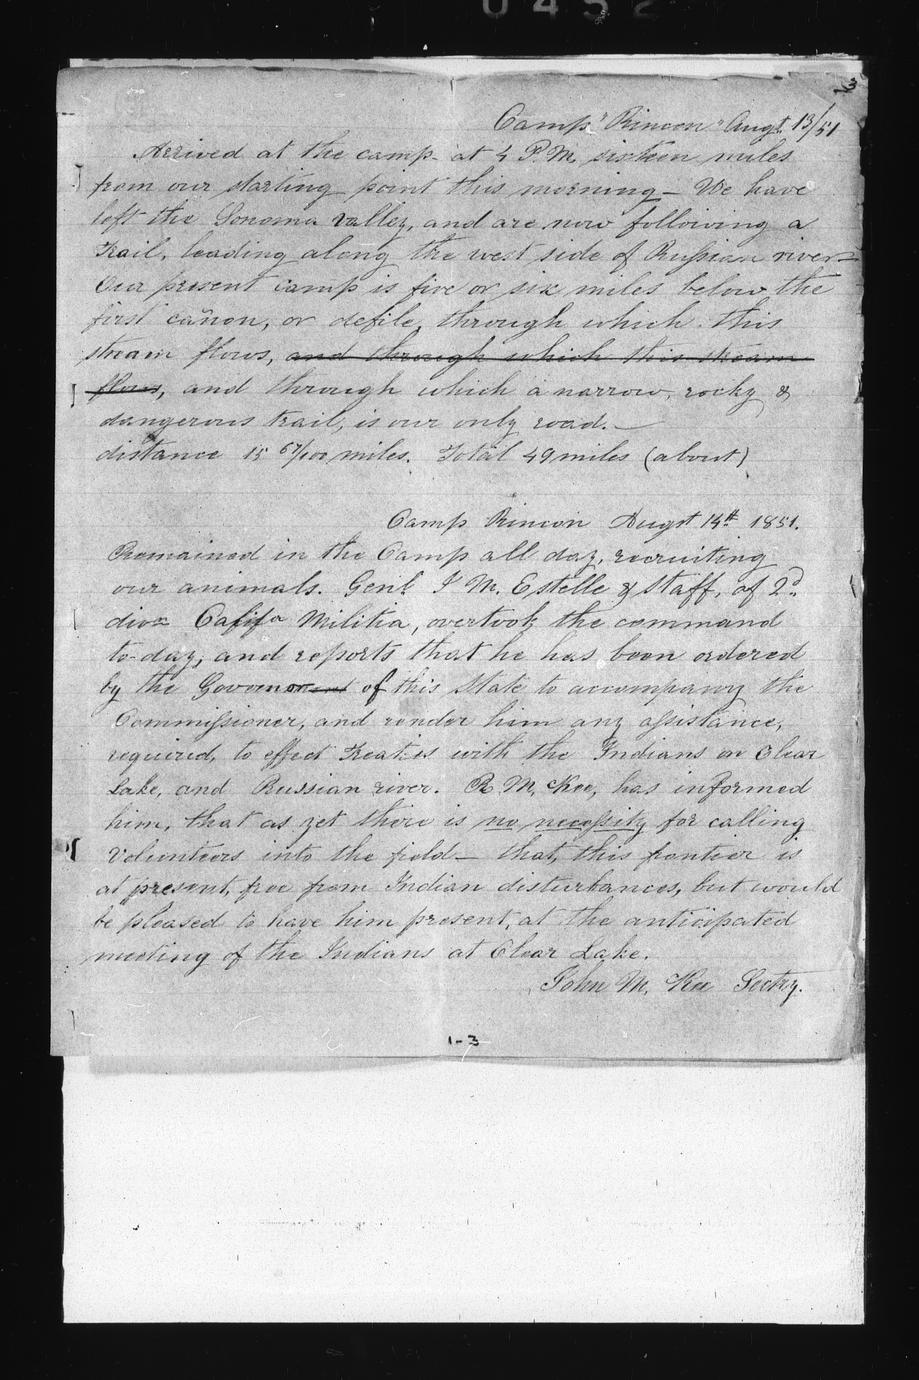 0452
3
Camp "Rincon" Augt. 13/51
Arrived at the camp at 4 P.M. sixteen miles
from our starting point this morning — We have
left the Sonoma valley, and are now following a
trail, leading along the west side of Russian river —
Our present camp is five or six miles below the
first cañon, or defile, through which this
stream flows, and through which this stream
flows, and through which a narrow, rocky &
dangerous trail, is our only road. —
distance 15 67/100 miles. Total 49 miles (about)
Camp Rincon Augst 14th 1851.
Remained in the Camp all day, recruiting
our animals. Genl. J M. Estelle & staff, of 2d
divn Califa Militia, overtook the command
to-day, and reports that he has been ordered
by the Governor of this State to accompany the
Commissioner, and render him any assistance,
required, to effect treaties with the Indians on Clear
Lake, and Russian river. R. M. Kee, has informed
him, that as yet there is no necessity for calling
volunteers into the field — that, this fronteer is
at present, free from Indian disturbances, but would
be pleased to have him present, at the anticipated
meeting of the Indians at Clear Lake.
John M. Kee Sectry.
1-3